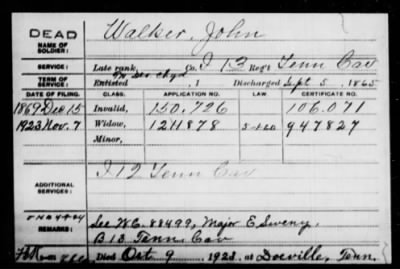 DEAD
NAME OF SOLDIER:
Walker, John
SERVICE:
Late rank, Co. I 13 Reg't Tenn Cav
TERM OF SERVICE:
Enlisted , 1 Discharged Sept 5, 1865
DATE OF FILING. CLASS. APPLICATION NO. LAW. CERTIFICATE NO.
1869 Dec 15 Invalid, 150.726 106.071
1923 Nov. 7 Widow, 1211878 947827
Minor,
ADDITIONAL SERVICES:
I 12 Tenn Cav
REMARKS:
See WC. 88499, Major E. Sweny,
B 13 Tenn Cav
Died Oct 9 1923, at Doeville, Tenn.